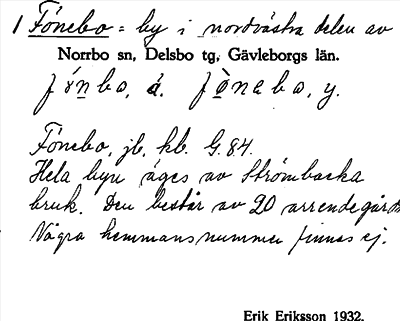 1 Fönebo = by i nordvästra delen av
Norrbo sn, Delsbo tg, Gävleborgs län.
fònbo, á. fònebo, y.
Fönebo, jb. kb. G.84.
Hela byn äges av Strömbacka
bruk. Den består av 20 arrendegårdar
Några hemmansnummer finnas ej.
Erik Eriksson 1932.